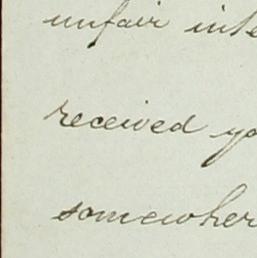 unfair inte
received yo
somewher